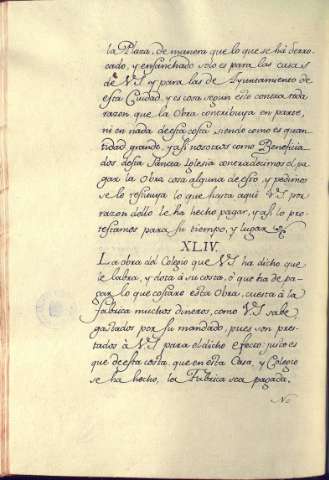 la Plaza, de manera que lo que se há derro-
cado, y ensanchado solo es para las casas
de V.S. y para las de Ayuntamiento de
esta Ciudad, y es cosa segun esto contra toda
razon que la Obra contribuya en parte,
ni en nada de esta costa, siendo como es quan-
tidad grande, y asi nosotros como Beneficia-
dos desta Sancta Iglesia contradecimos el pa-
gar la Obra cosa alguna de esto, y pedimos
se lo restituya lo que hasta aqui V.S. por
razon dello le ha hecho pagar, y asi lo pro-
testamos para su tiempo, y lugar
XLIV.
La obra del Colegio que V.S. ha dicho que
le labra, y dota à su costa, ò que ha de pa-
gar lo que costare esta Obra, cuesta à la
fabrica muchos dineros, como V.S. sabe
gastados por su mandado, pues son pres-
tados à V.S. para el dicho efecto: justo es
que de esta costa, que en esta Casa, y Colegio
se ha hecho, la Fabrica sea pagada.
No